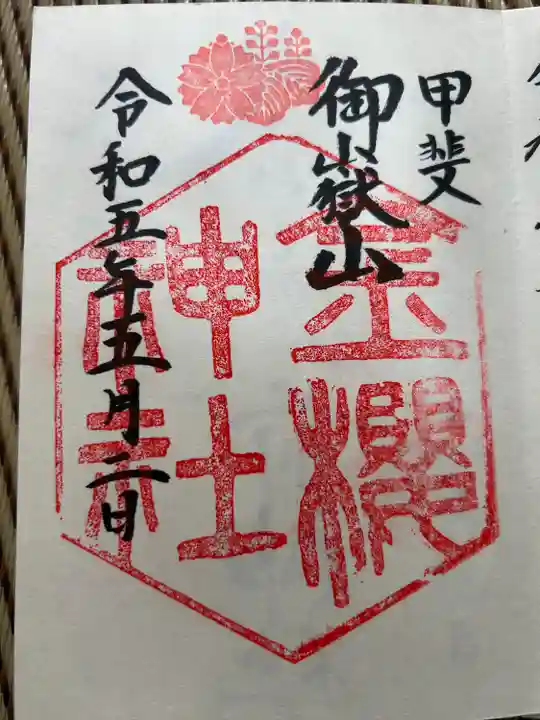 甲斐
御嶽山
金櫻
神社
令和五年五月二日